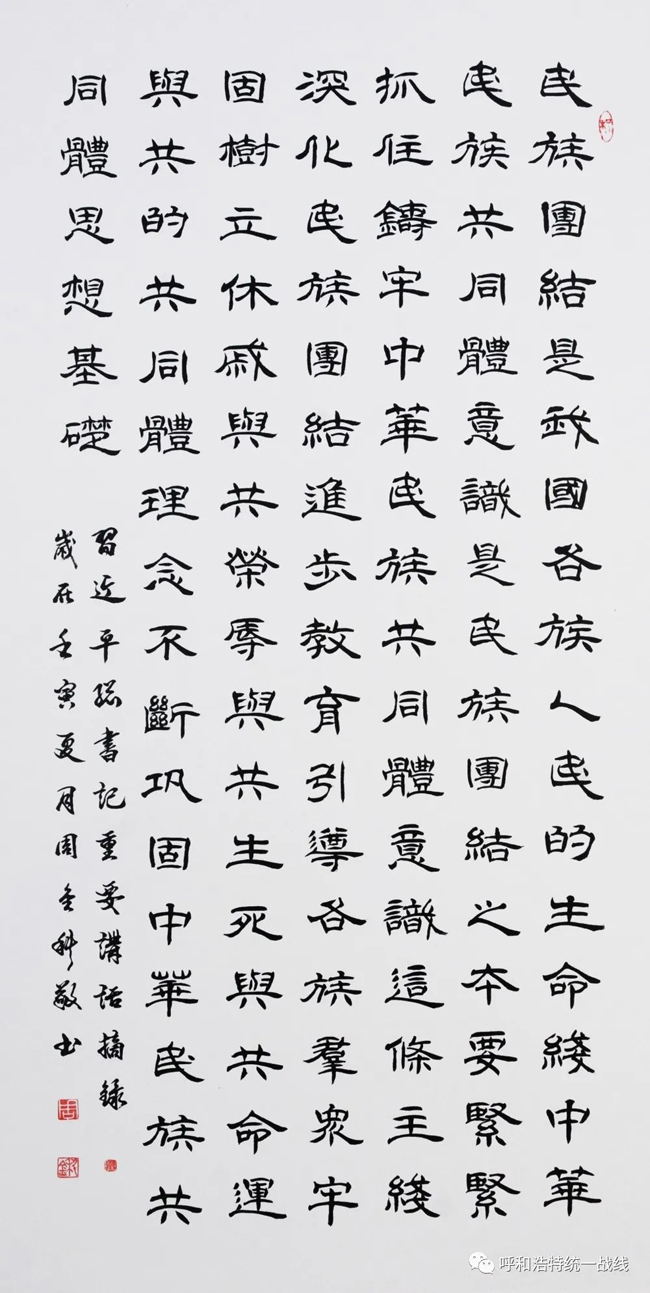 民族團結是我國各族人民的生命綫中華
民族共同體意識是民族團結之本要緊緊
抓住鑄牢中華民族共同體意識這條主綫
深化民族團結進步教育引導各族羣眾牢
固樹立休戚與共榮辱與共生死與共命運
與共的共同體理念不斷巩固中華民族共
同體思想基礎
習近平總書記重要講話摘録
歲在壬寅夏月周金科敬书
呼和浩特统一战线